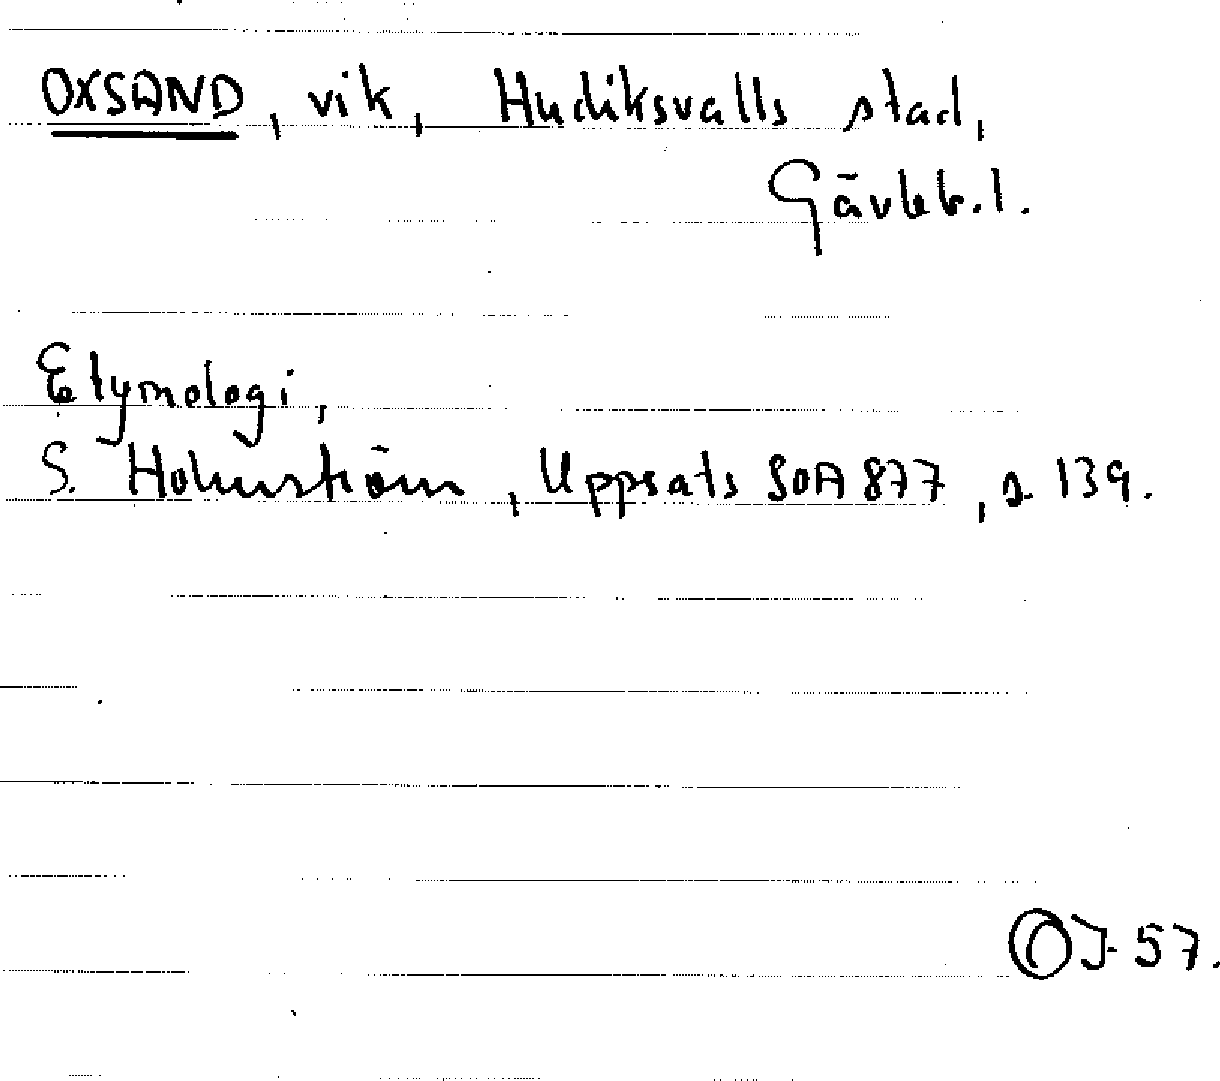 OXSAND, vik, Hudiksvalls stad,
Gävleb. l.
Etymologi,
S. Holmström, Uppsats SOA 877, s. 139.
OJ 57.